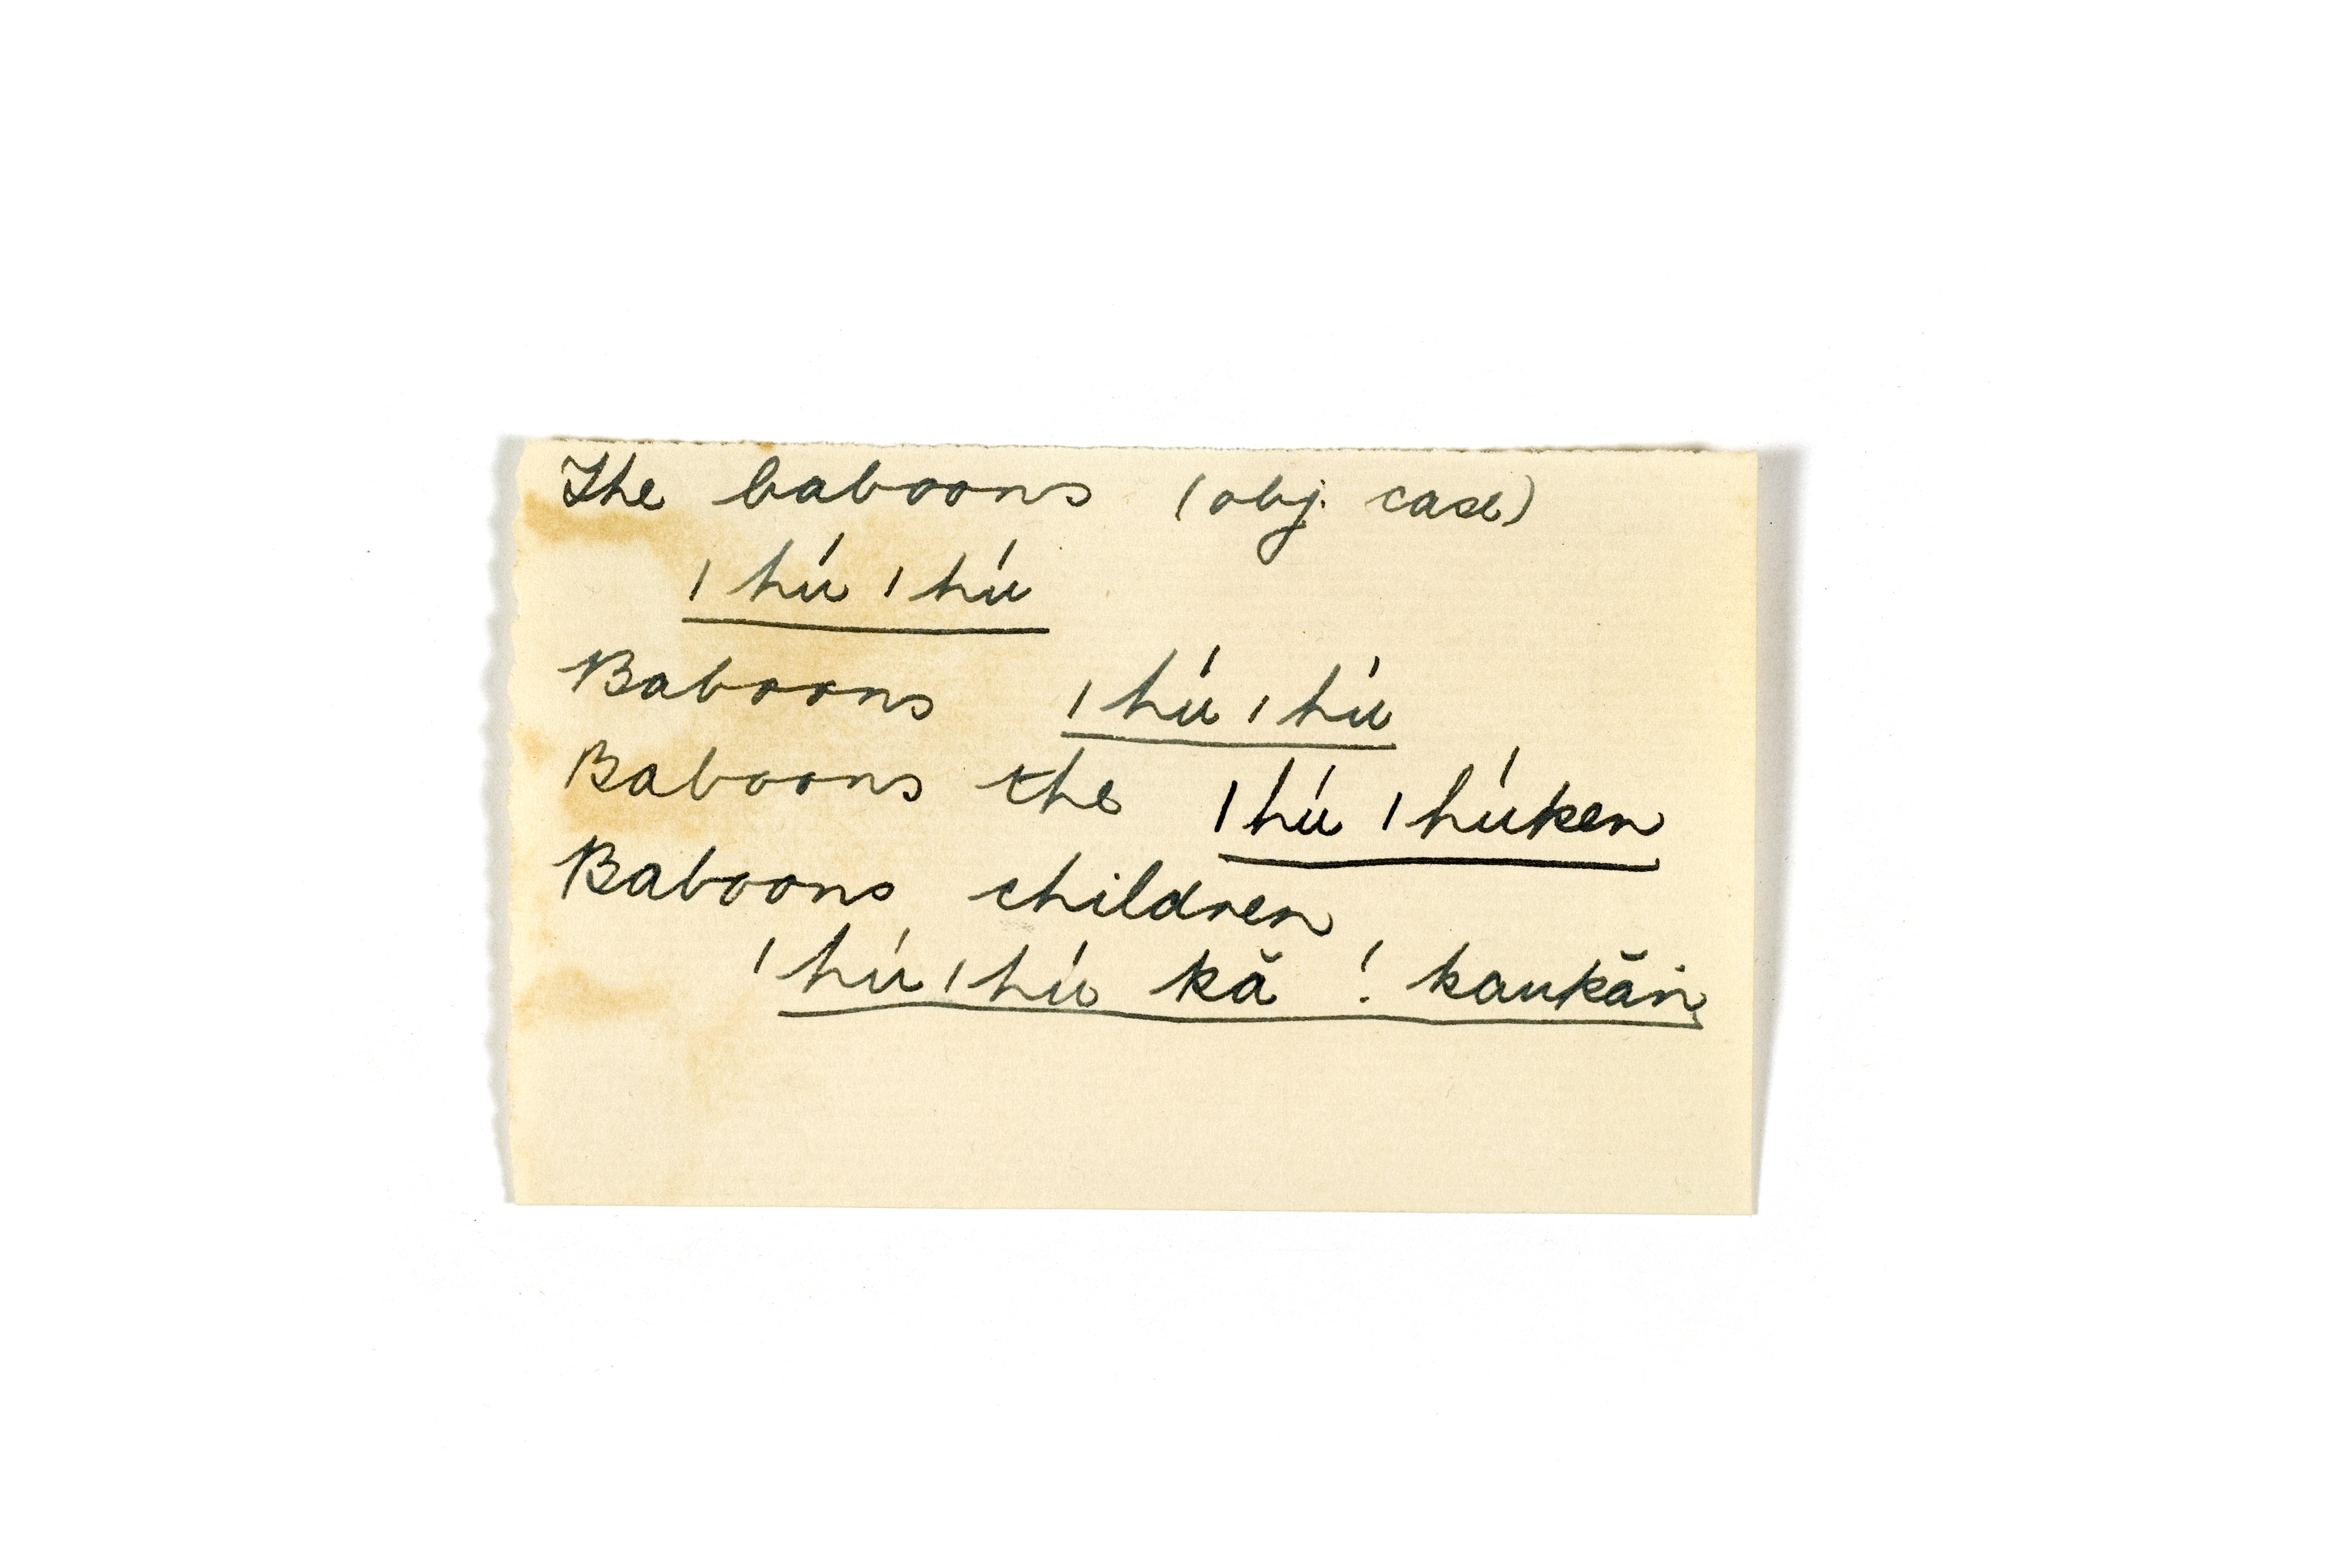 The baboons (obj. case)
| hú | hú
Baboons | hú | hú
Baboons the | hú | húken
Baboons children
| hú | hú kă ! kaukăn